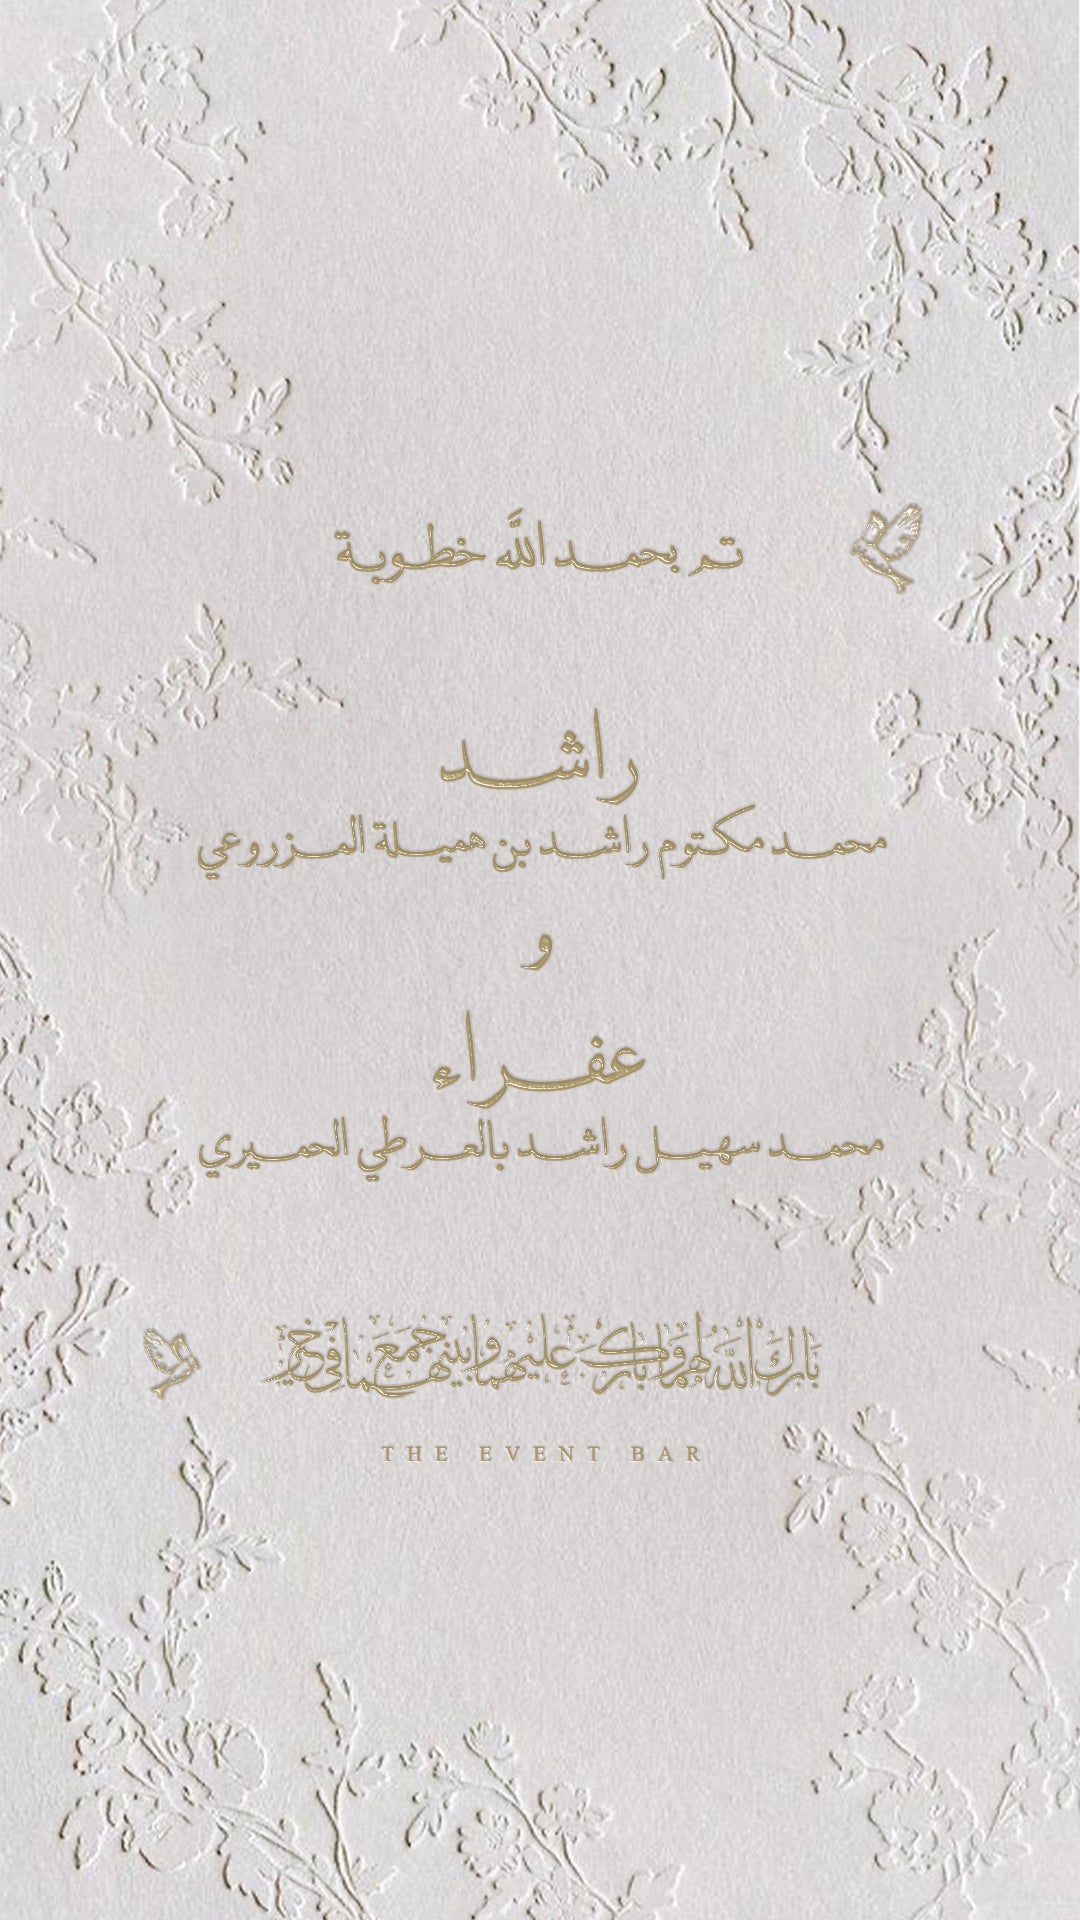 تم بحمد اللَّه خطوبة
راشد
محمد مكتوم راشد بن هميلة المزروعي
و
عفراء
محمد سهيل راشد بالعرطي الحميري
بَارَكَ اللَّهُ لَهُمَا وَبَارَكَ عَلَيْهِمَا وَجَمَعَ بَيْنَهُمَا فِي خَيْرٍ
THE EVENT BAR